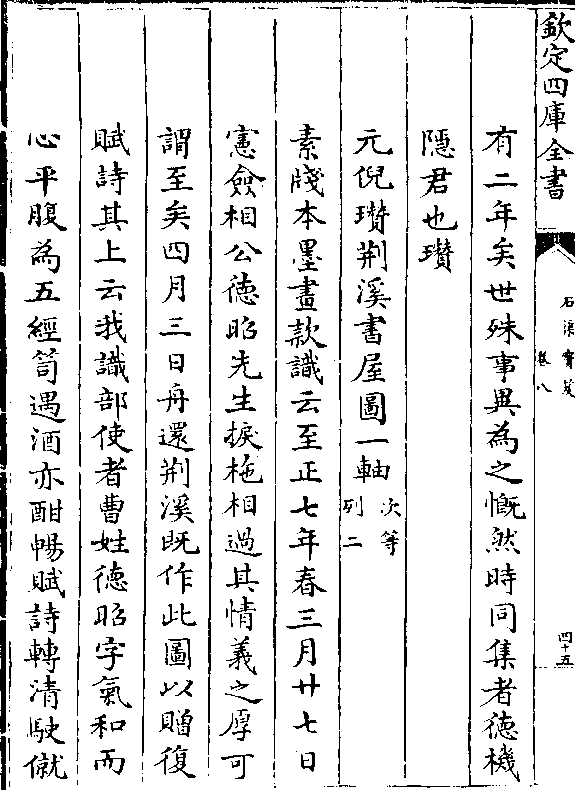 欽定四庫全書
石渠寳笈
卷八
四十五
有二年矣世殊事異為之慨然時同集者徳機
隠君也瓚
元倪瓚荆溪書屋圖一軸次等
列二
素牋本墨畫款識云至正七年春三月廿七日
憲僉相公徳昭先生捩柂相過其情義之厚可
謂至矣四月三日舟還荆溪既作此圖以贈復
賦詩其上云我識部使者曹姓徳昭字氣和而
心平腹為五經笥遇酒亦酣暢賦詩轉清駛僦